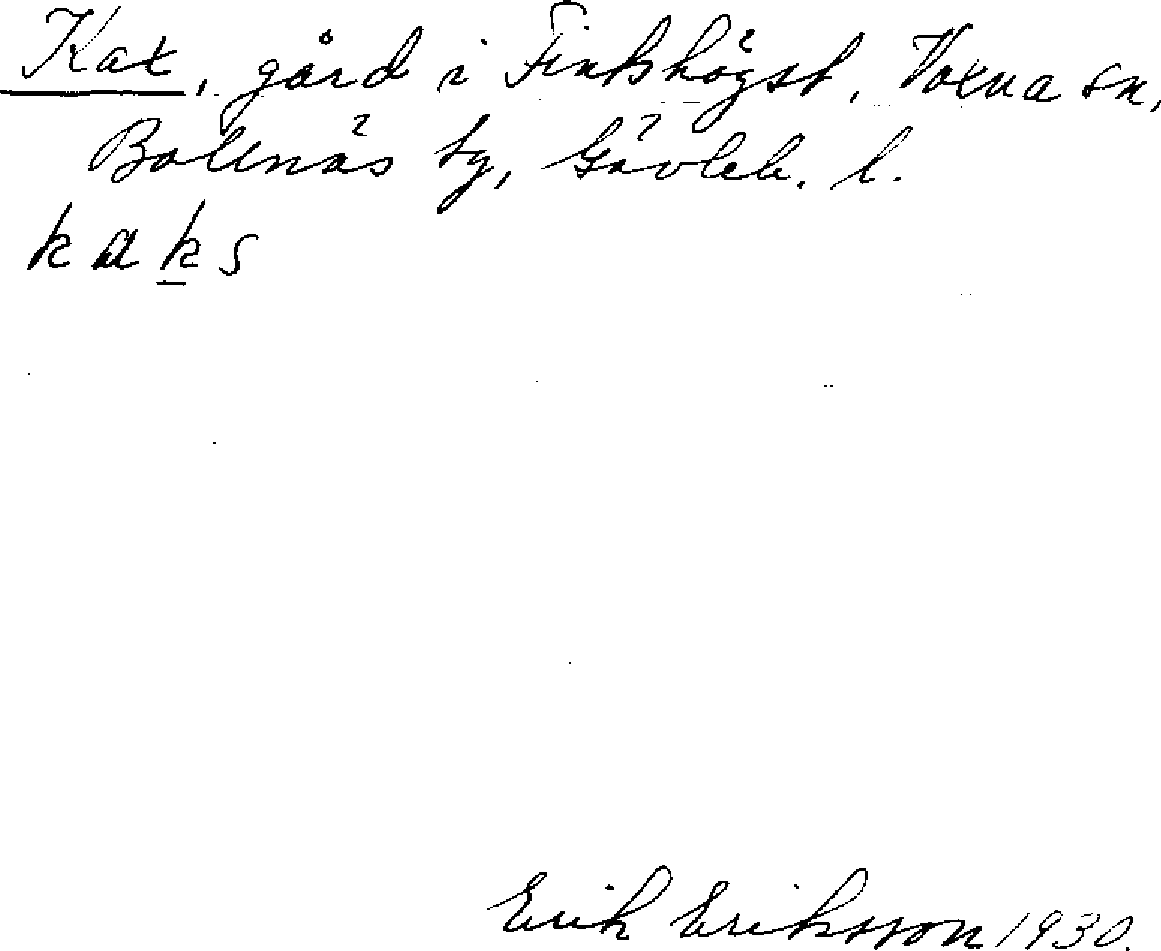 Kax, gård i Finkhögst, Voxna sn,
Bollnäs tg, Gävleb. l.
k a k s
Erik Eriksson 1930.